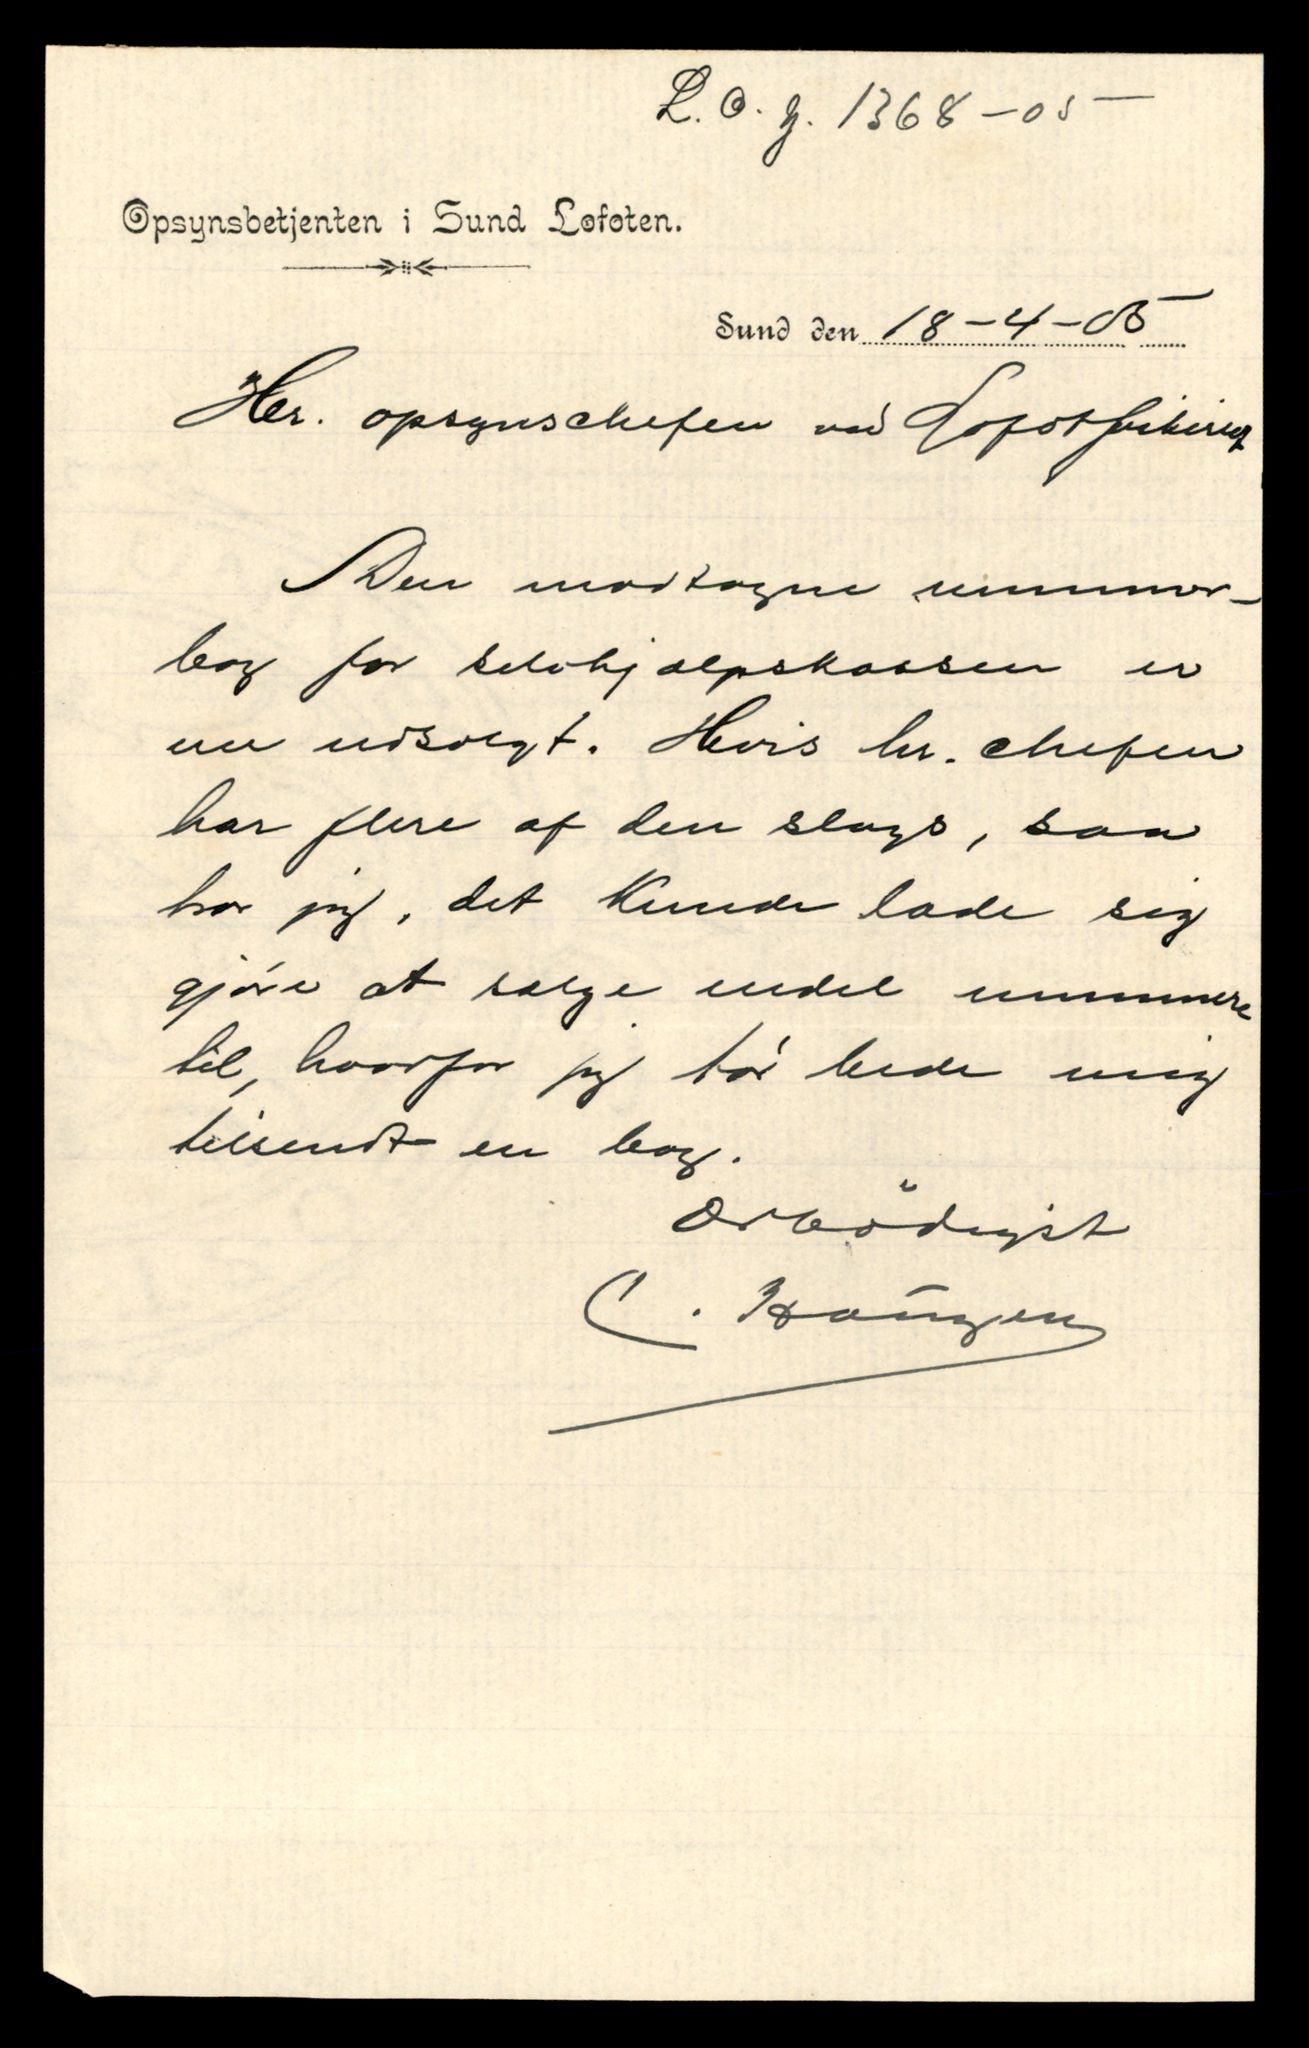 L. O. J. 1368-05
Opsynsbetjenten i Sund Lofoten.
Sund den 18-4-05
Hr. opsynschefen ved Lofotfiskeriet
Den modtagne nummer-
bog for selvhjælpskassen er
nu udsolgt. Hvis hr. chefen
har flere af den slags, saa
tror jeg, det kunde lade sig
gjøre at sælge endel nummere
til, hvorfor jeg tør bede mig
tilsendt en bog.
Ærbødigst
C. Haugen